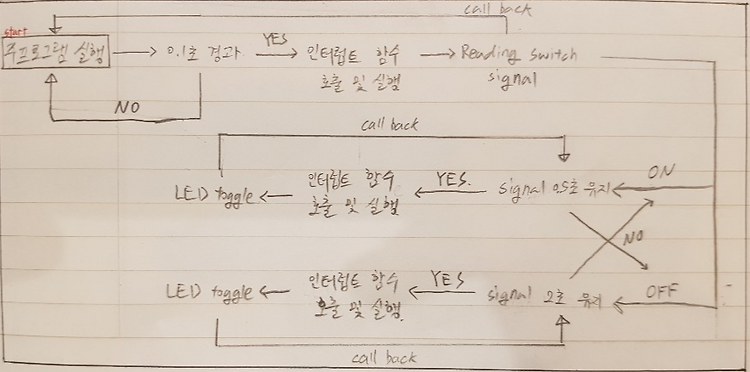 call back
start
주프로그램 실행
0.1초 경과
YES
인터럽트 함수
호출 및 실행
Reading switch
signal
NO
call back
LED toggle
인터럽트 함수
호출 및 실행
YES.
signal 0.5초 유지
ON
NO
LED toggle
인터럽트 함수
호출 및 실행.
YES
signal 2초 유지
OFF
call back